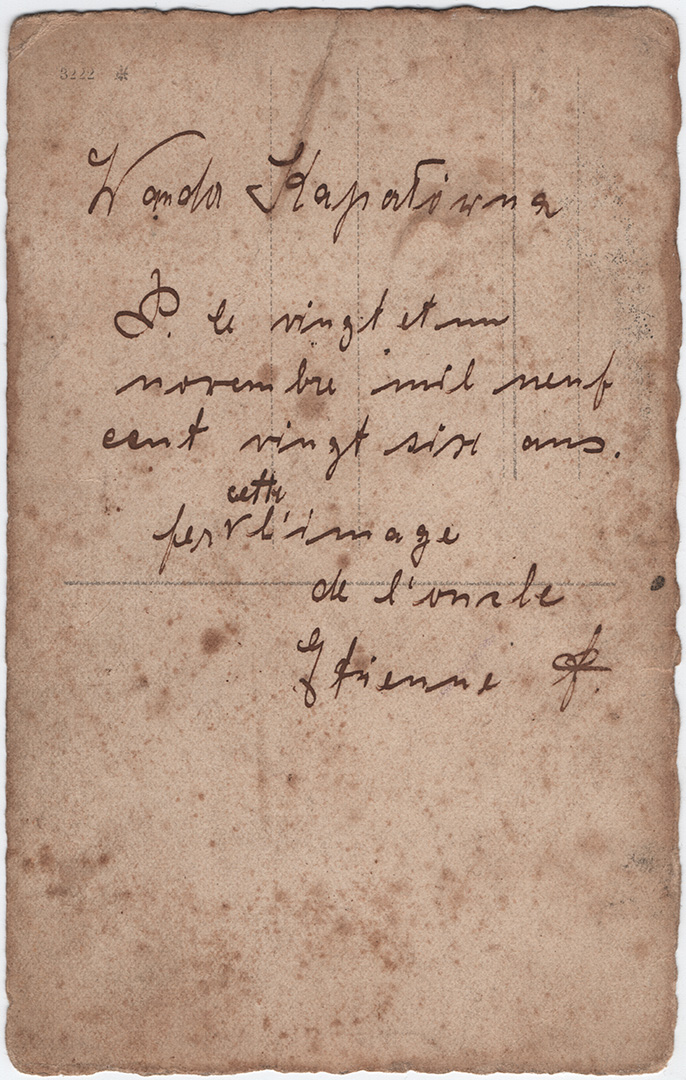 3222 *
Wanda Kapatówna
P. le vingt et un
novembre mil neuf
cent vingt six ans.
cette
l'image
de l'oncle
Etienne P.